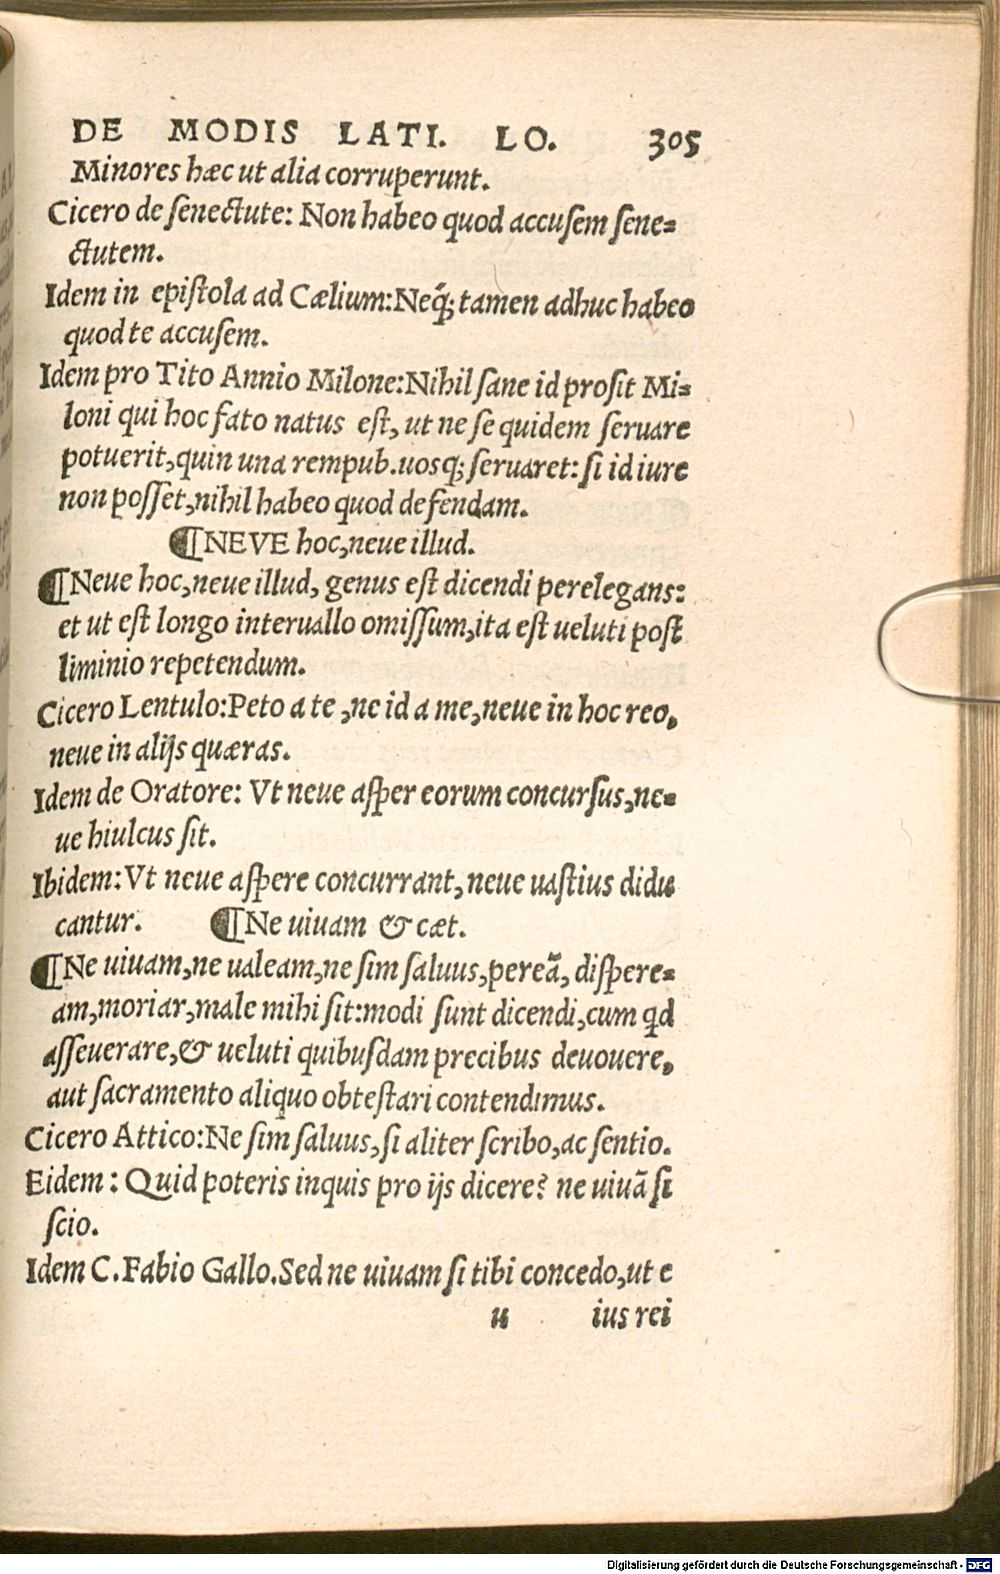 DE MODIS LATI. LO. 305
Minores hæc ut alia corruperunt.
Cicero de senectute: Non habeo quod accusem sene=
ctutem.
Idem in epistola ad Cælium:Neq̃; tamen adhuc habeo
quod te accusem.
Idem pro Tito Annio Milone:Nihil sane id prosit Mi=
loni qui hoc fato natus est, ut ne se quidem seruare
potuerit,quin una rempub.uosq; seruaret: si id iure
non posset,nihil habeo quod defendam.
¶NEVE hoc,neue illud.
¶Neue hoc,neue illud, genus est dicendi perelegans:
et ut est longo interuallo omissum,ita est ueluti post
liminio repetendum.
Cicero Lentulo:Peto a te ,ne id a me,neue in hoc reo,
neue in alijs quæras.
Idem de Oratore: Vt neue asper eorum concursus,ne=
ue hiulcus sit.
Ibidem:Vt neue aspere concurrant,neue uastius didu
cantur. ¶Ne uiuam & cæt.
¶Ne uiuam,ne ualeam,ne sim saluus,pereã, dispere=
am,moriar,male mihi sit:modi sunt dicendi,cum qd
asseuerare,& ueluti quibusdam precibus deuouere,
aut sacramento aliquo obtestari contendimus.
Cicero Attico:Ne sim saluus,si aliter scribo,ac sentio.
Eidem: Quid poteris inquis pro ijs dicere? ne uiuã si
scio.
Idem C.Fabio Gallo.Sed ne uiuam si tibi concedo,ut e
u ius rei
Digitalisierung gefördert durch die Deutsche Forschungsgemeinschaft - DFG